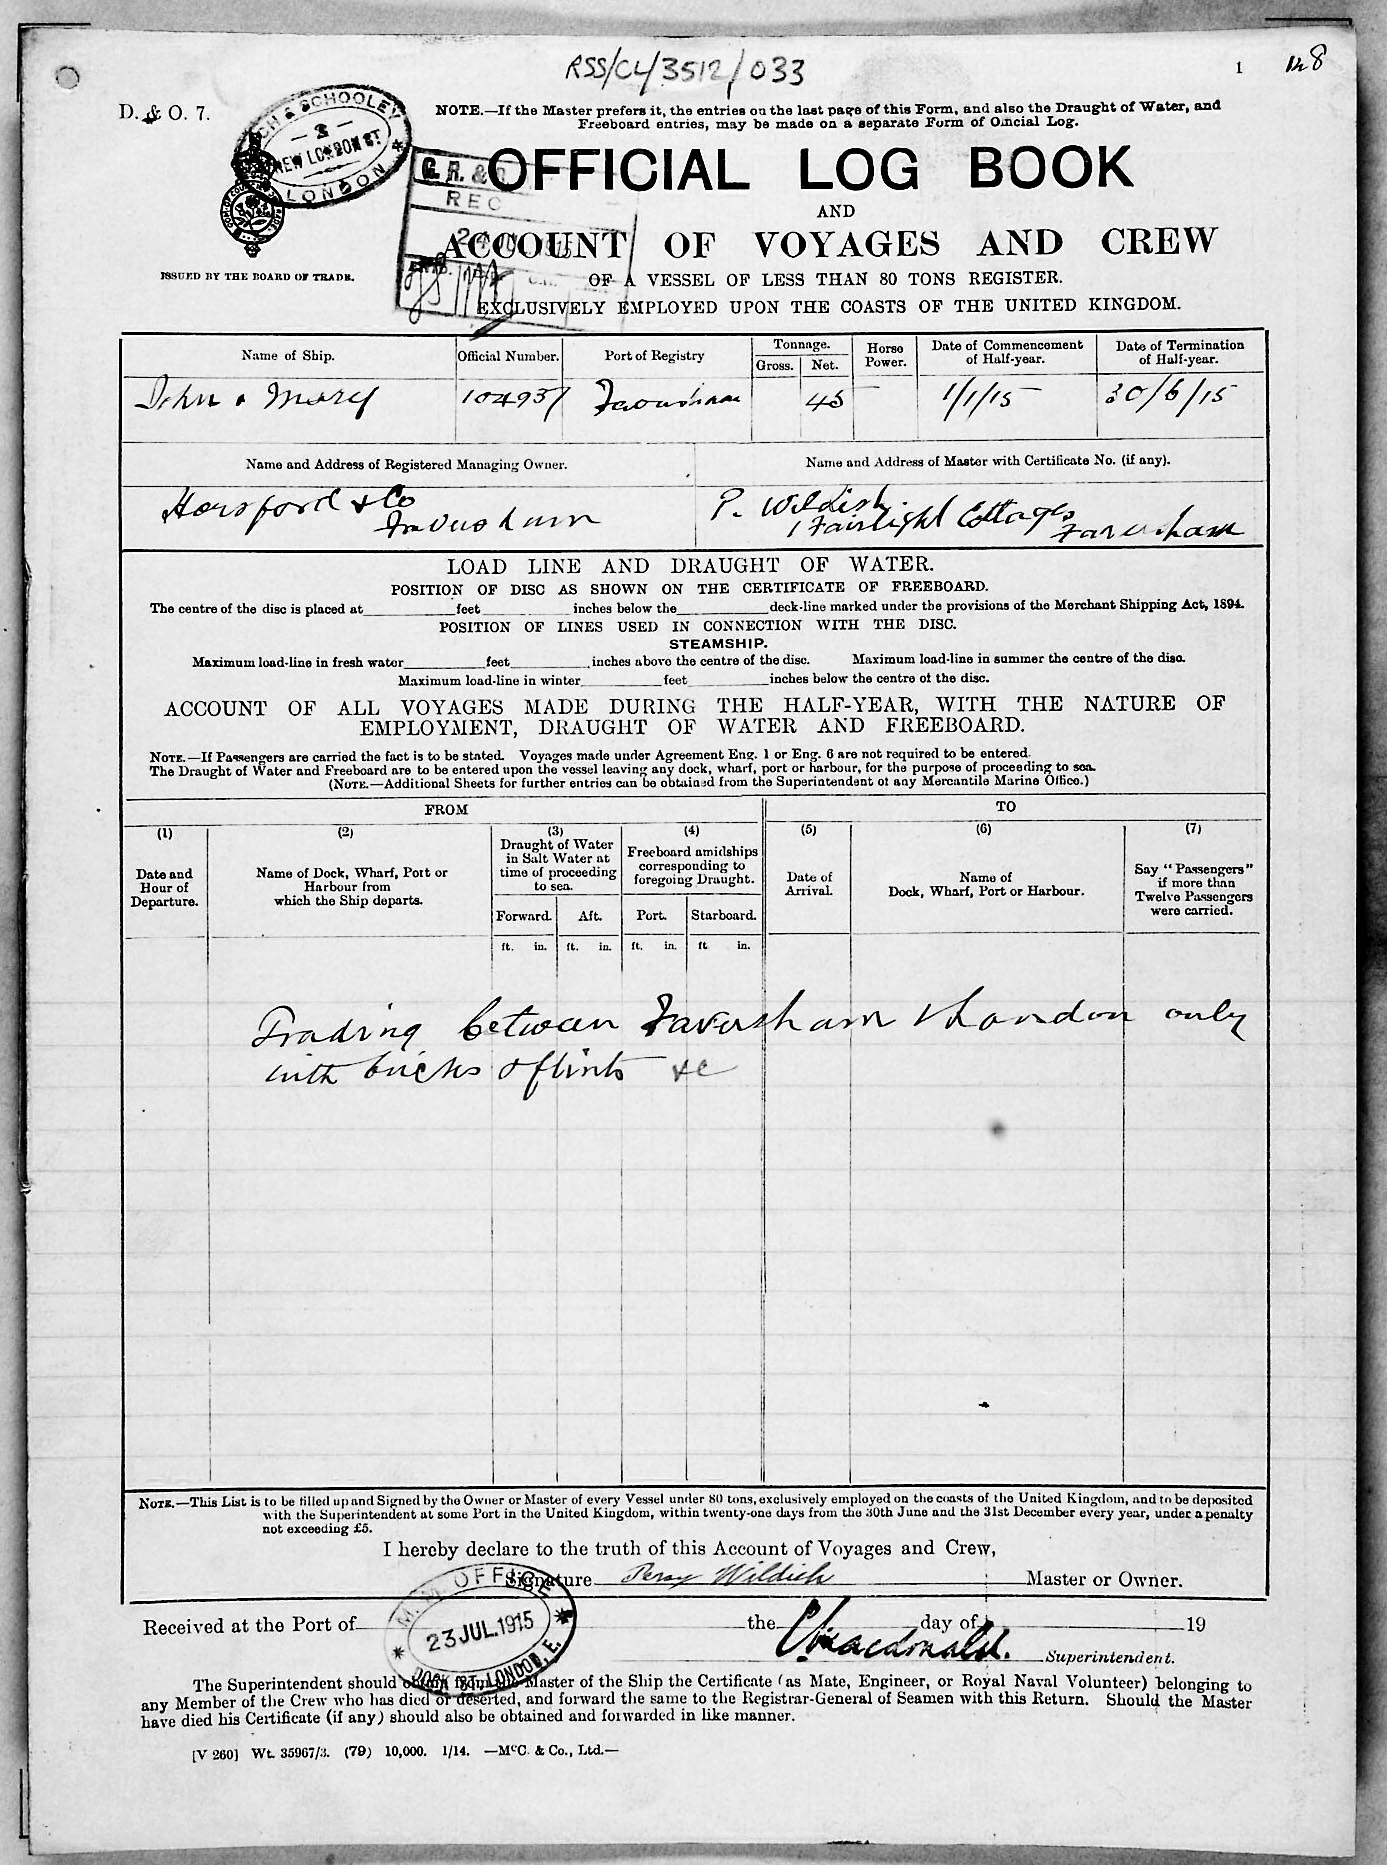 RSS/CL/3512/033
1
128
D. & O. 7.
NOTE.—If the Master prefers it, the entries on the last page of this Form, and also the Draught of Water, and
Freeboard entries, may be made on a separate Form of Official Log.
& SCHOOLEY
— 3 —
NEW LONDON ST
LONDON
G. R. &
REC
OFFICIAL LOG BOOK
AND
ACCOUNT OF VOYAGES AND CREW
OF A VESSEL OF LESS THAN 80 TONS REGISTER.
EXCLUSIVELY EMPLOYED UPON THE COASTS OF THE UNITED KINGDOM.
ISSUED BY THE BOARD OF TRADE.
Name of Ship. Official Number. Port of Registry Tonnage. Gross. Net. Horse Power. Date of Commencement of Half-year. Date of Termination of Half-year.
John & Mary 104937 Faversham 45 1/1/15 30/6/15
Name and Address of Registered Managing Owner. Name and Address of Master with Certificate No. (if any).
Horsford & Co
Faversham
P. Wildish
1 Fairlight Cottages
Faversham
LOAD LINE AND DRAUGHT OF WATER.
POSITION OF DISC AS SHOWN ON THE CERTIFICATE OF FREEBOARD.
The centre of the disc is placed at feet inches below the deck-line marked under the provisions of the Merchant Shipping Act, 1894.
POSITION OF LINES USED IN CONNECTION WITH THE DISC.
STEAMSHIP.
Maximum load-line in fresh water feet inches above the centre of the disc. Maximum load-line in summer the centre of the disc.
Maximum load-line in winter feet inches below the centre of the disc.
ACCOUNT OF ALL VOYAGES MADE DURING THE HALF-YEAR, WITH THE NATURE OF
EMPLOYMENT, DRAUGHT OF WATER AND FREEBOARD.
NOTE.—If Passengers are carried the fact is to be stated. Voyages made under Agreement Eng. 1 or Eng. 6 are not required to be entered.
The Draught of Water and Freeboard are to be entered upon the vessel leaving any dock, wharf, port or harbour, for the purpose of proceeding to sea.
(NOTE.—Additional Sheets for further entries can be obtained from the Superintendent of any Mercantile Marine Office.)
FROM TO
(1) (2) (3) (4) (5) (6) (7)
Date and
Hour of
Departure.
Name of Dock, Wharf, Port or
Harbour from
which the Ship departs.
Draught of Water
in Salt Water at
time of proceeding
to sea.
Freeboard amidships
corresponding to
foregoing Draught.
Date of
Arrival.
Name of
Dock, Wharf, Port or Harbour.
Say "Passengers"
if more than
Twelve Passengers
were carried.
Forward. Aft. Port. Starboard.
ft. in. ft. in. ft. in. ft in.
Trading between Faversham & London only
with bricks & flints &c
NOTE.—This List is to be filled up and Signed by the Owner or Master of every Vessel under 80 tons, exclusively employed on the coasts of the United Kingdom, and to be deposited
with the Superintendent at some Port in the United Kingdom, within twenty-one days from the 30th June and the 31st December every year, under a penalty
not exceeding £5.
I hereby declare to the truth of this Account of Voyages and Crew,
Signature Percy Wildish Master or Owner.
M. M. OFFICE
23 JUL. 1915
DOCK ST. LONDON, E.
Received at the Port of the day of 19
Macdonald. Superintendent.
The Superintendent should obtain from the Master of the Ship the Certificate (as Mate, Engineer, or Royal Naval Volunteer) belonging to
any Member of the Crew who has died or deserted, and forward the same to the Registrar-General of Seamen with this Return. Should the Master
have died his Certificate (if any) should also be obtained and forwarded in like manner.
[V 260] Wt. 35967/3. (79) 10,000. 1/14. —McC. & Co., Ltd.—